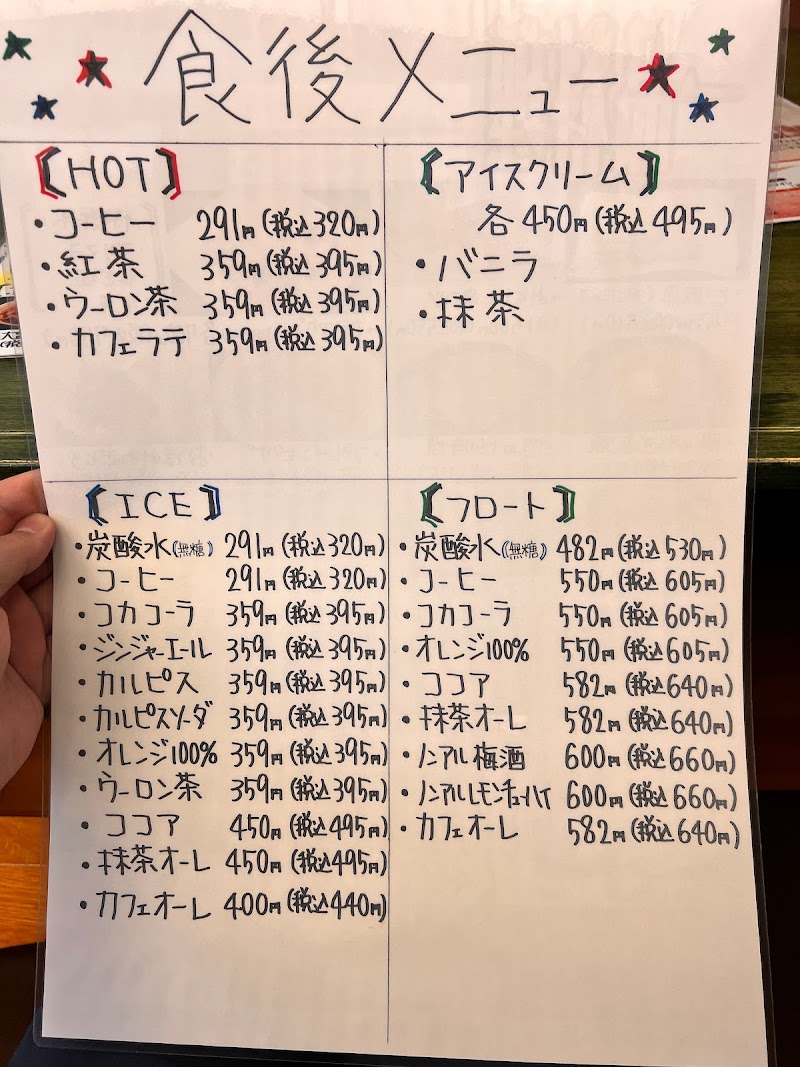 食後メニュー
【HOT】
・コーヒー 291円(税込320円)
・紅茶 359円(税込395円)
・ウーロン茶 359円(税込395円)
・カフェラテ 359円(税込395円)
【アイスクリーム】
各450円(税込495円)
・バニラ
・抹茶
【ICE】
・炭酸水(無糖) 291円(税込320円)
・コーヒー 291円(税込320円)
・コカコーラ 359円(税込395円)
・ジンジャーエール 359円(税込395円)
・カルピス 359円(税込395円)
・カルピスソーダ 359円(税込395円)
・オレンジ100% 359円(税込395円)
・ウーロン茶 359円(税込395円)
・ココア 450円(税込495円)
・抹茶オーレ 450円(税込495円)
・カフェオーレ 400円(税込440円)
【フロート】
・炭酸水(無糖) 482円(税込530円)
・コーヒー 550円(税込605円)
・コカコーラ 550円(税込605円)
・オレンジ100% 550円(税込605円)
・ココア 582円(税込640円)
・抹茶オーレ 582円(税込640円)
・ノンアル梅酒 600円(税込660円)
・ノンアルレモンチューハイ 600円(税込660円)
・カフェオーレ 582円(税込640円)